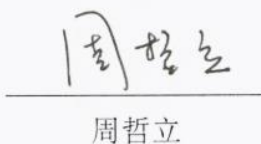 周哲立
周哲立